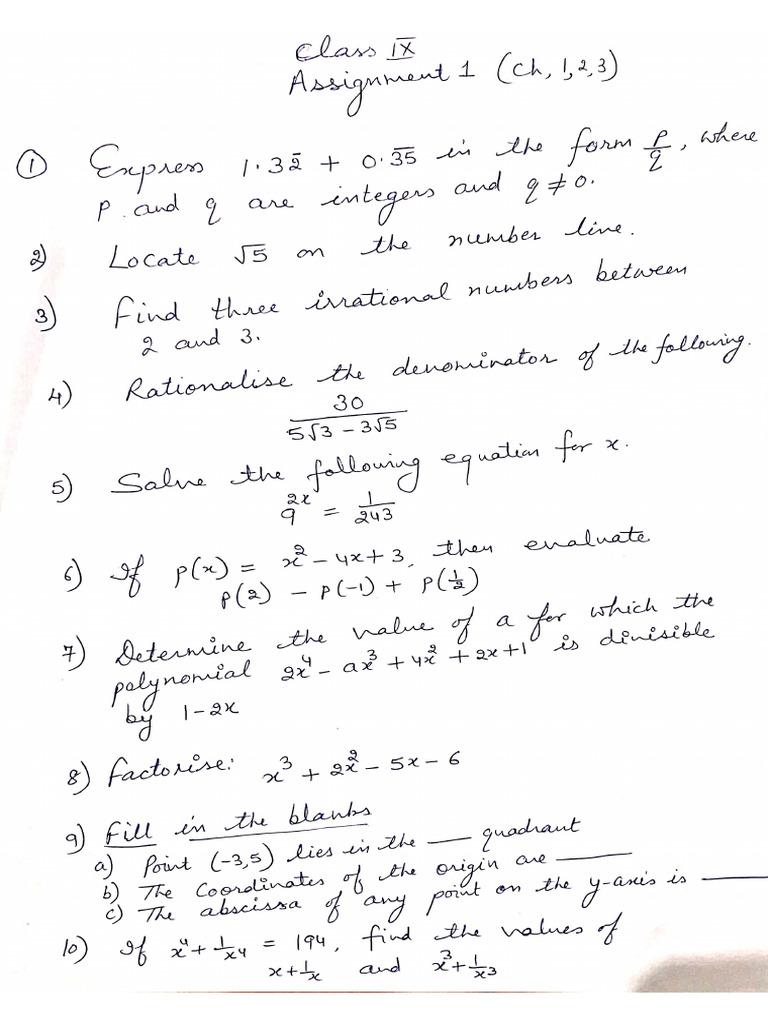 Class IX
Assignment 1 (Ch, 1,2,3)
① Express 1.32̄ + 0.3̅5̅ in the form p/q, where
p and q are integers and q ≠ 0.
2) Locate √5 on the number line.
3) Find three irrational numbers between
2 and 3.
4) Rationalise the denominator of the following.
30
5√3 - 3√5
5) Solve the following equation for x.
9²ˣ = 1/243
6) If p(x) = x² - 4x + 3, then evaluate
p(2) - p(-1) + p(1/2)
7) Determine the value of a for which the
polynomial 2x⁴ - ax³ + 4x² + 2x + 1 is divisible
by 1-2x
8) Factorise: x³ + 2x² - 5x - 6
9) Fill in the blanks
a) Point (-3,5) lies in the ___ quadrant
b) The coordinates of the origin are ___
c) The abscissa of any point on the y-axis is ___
10) If x⁴ + 1/x⁴ = 194, find the values of
x + 1/x and x³ + 1/x³